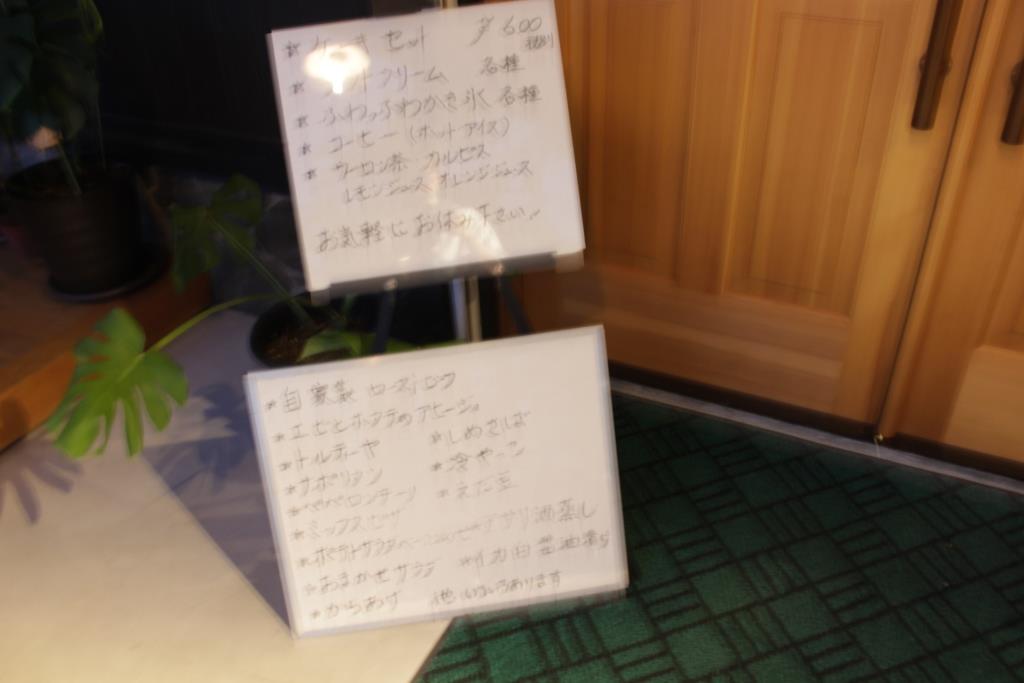 * ケーキセット ¥600
税込
* ソフトクリーム 各種
* ふわっふわかき氷 各種
* コーヒー(ホット・アイス)
* ウーロン茶・カルピス
レモンジュース・オレンジジュース
お気軽にお休み下さい
* 自家製ローストポーク
* エビとホタテのアヒージョ
* トルティーヤ * しめさば
* ナポリタン * 冷やっこ
* ペペロンチーノ * えだ豆
* ミックスピザ
* ポテトサラダ アサリ酒蒸し
* おまかせサラダ * イカ白醤油漬け
* からあげ 他いろいろあります